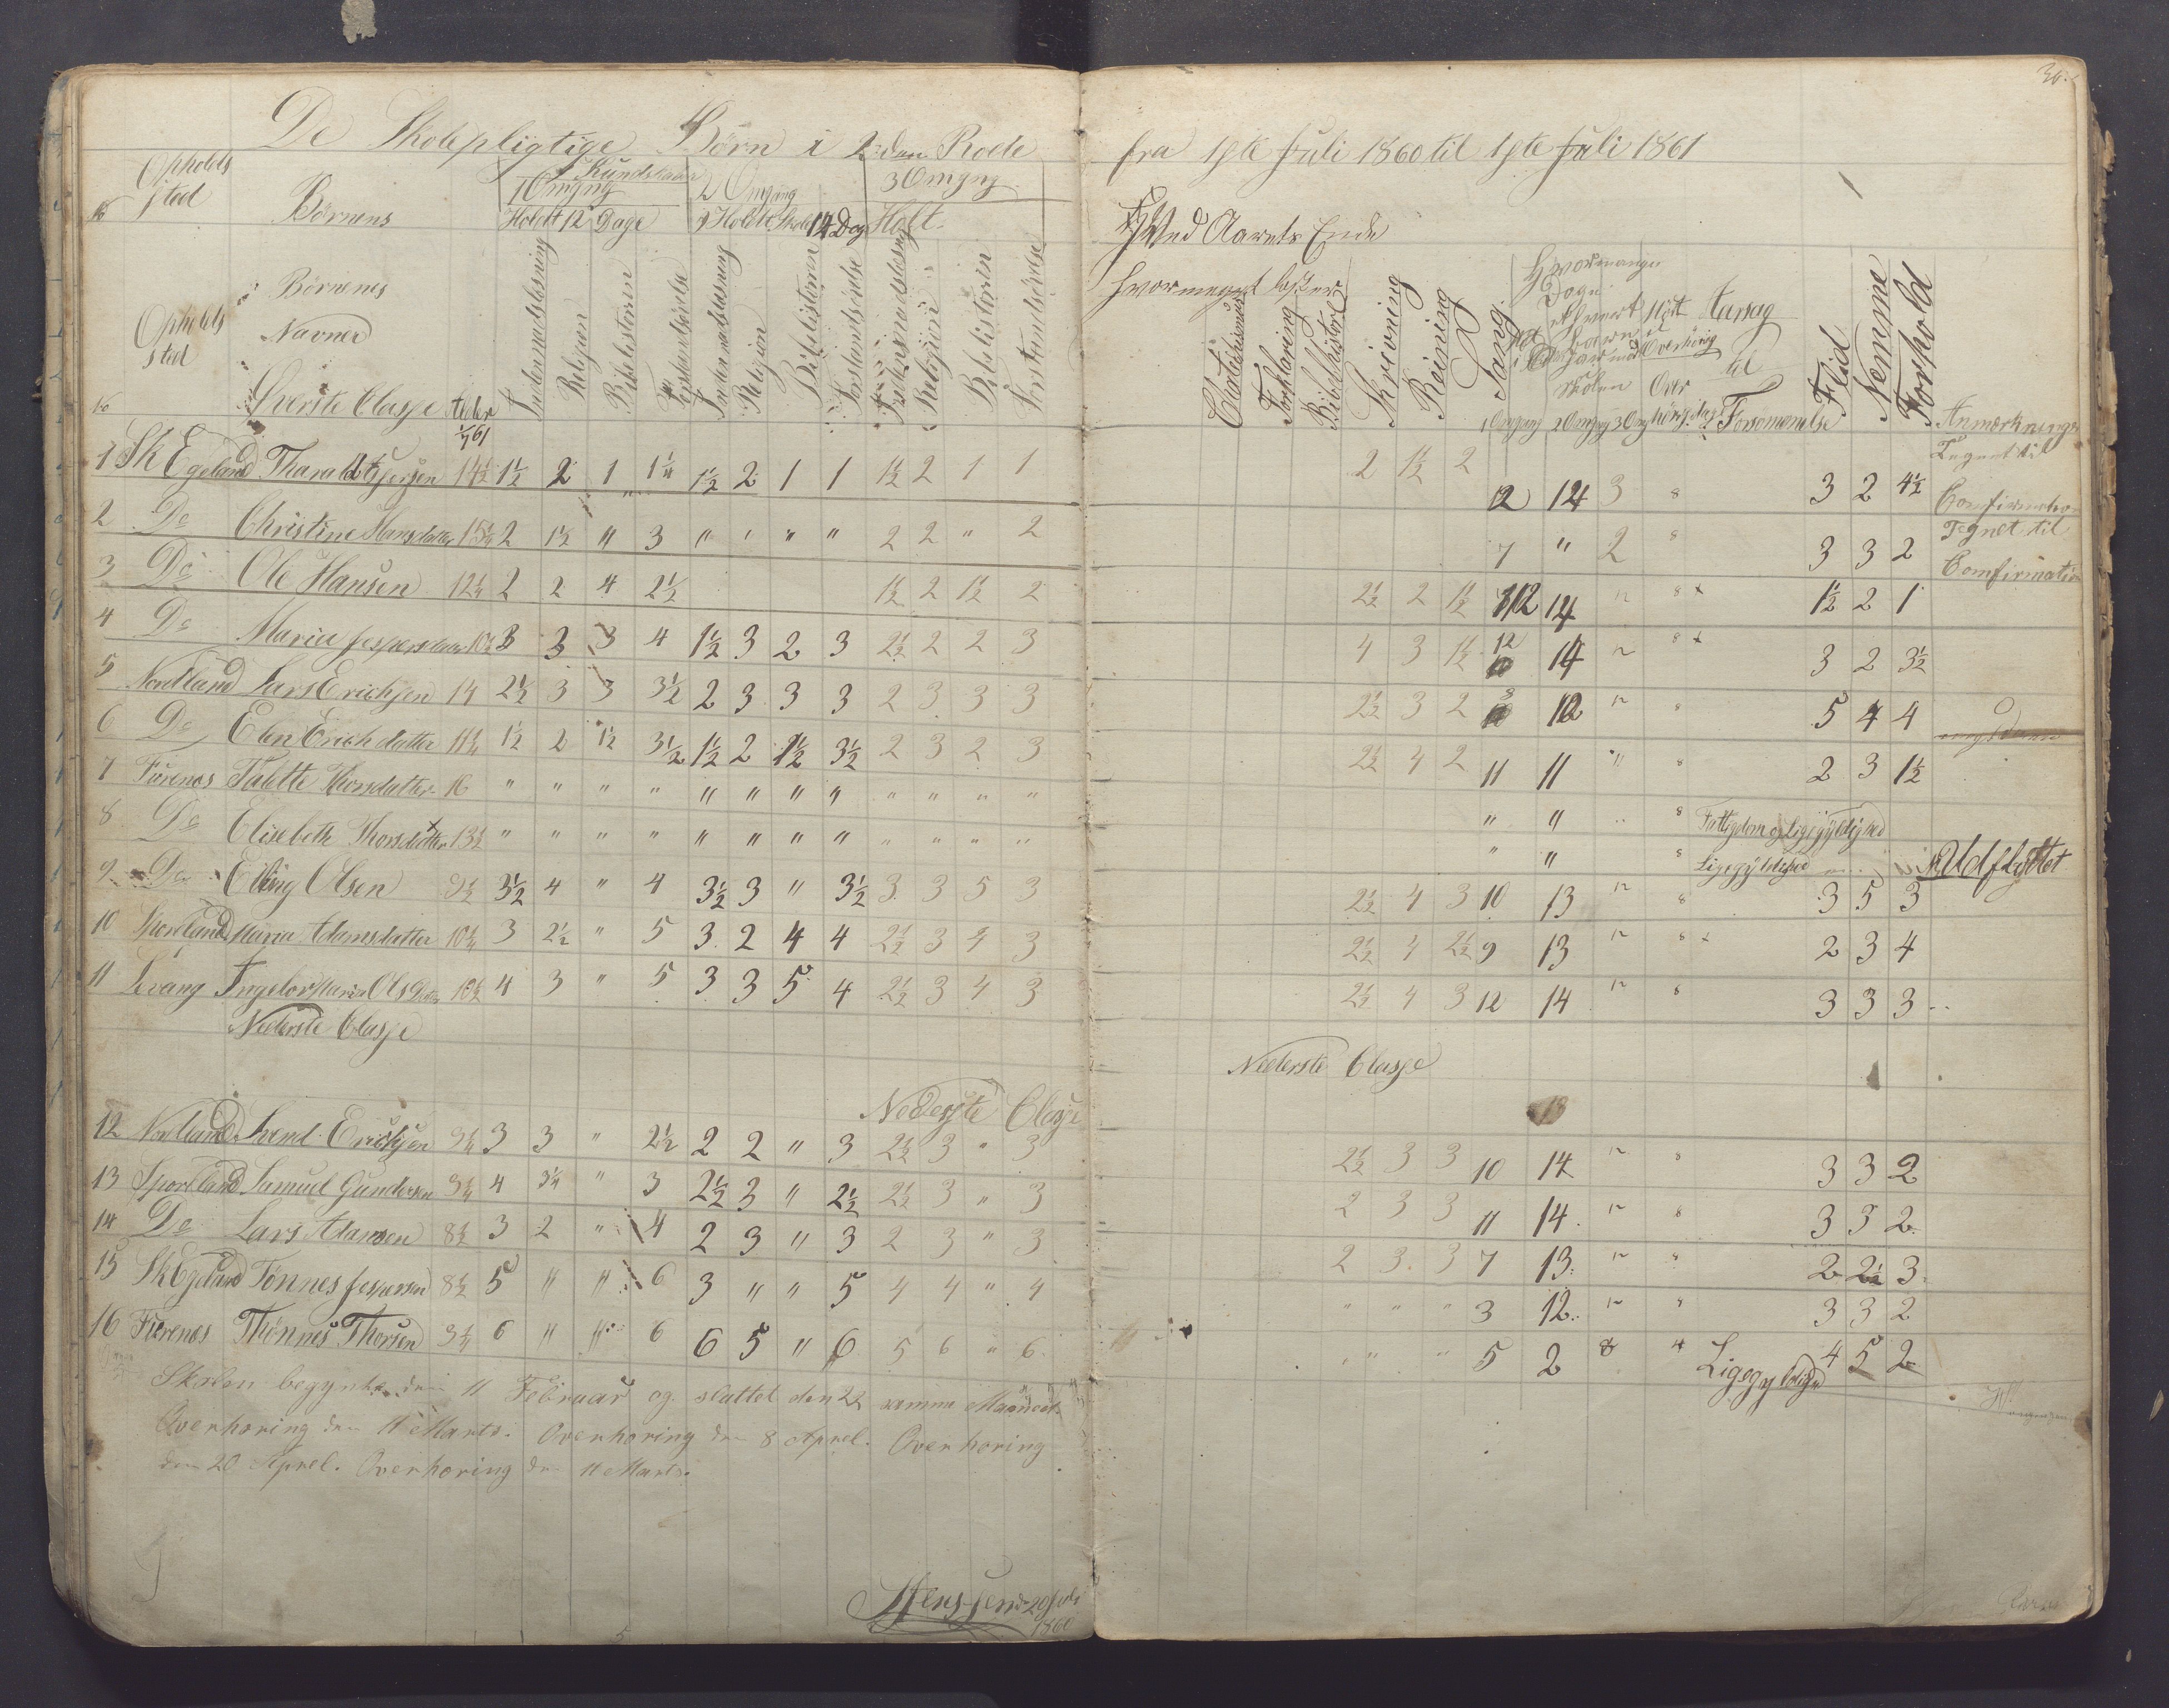 De Skolepligtige Börn i 2den Rode
fra 1ste Juli 1860 til 1ste Juli 1861
Opholds sted
Kundskaber
1 Omgng 2 Omgang 3 Omgng
No Börnens Holdt 12 Dage Holdt Skole 14 Dage Holt
Ved Aarets Ende
hvormeget læst er
Opholds sted
Börnenes
Navner
Överste Classe Alder
1/7 61
Indenadslæsning Religion Bibelistorien Forstandsövelse Indenadslæsning Religion Bibelistorien Forstandsövelse Indenadslæsning Religion Bibelistorien Forstandsövelse
Forklaring Bibelhistori Skrivning Reining Sang
Hvormange Dage
ethvert Barn
Skolen
1 Omgng 2 Omgng 3 Omg
Aarsag til Forsömmelse
Flid Nemme Forhold Anmærkninge
1 Sk Egeland Tharald 14½ 1½ 2 1 1¼ 1½ 2 1 1 1½ 2 1 1 2 1½ 2 12 14 3 8 3 2 4½ Tegnet til Comfirmation
2 Do Christine Hansdatter 15¼ 2 1½ " 3 " " " " 2 2 " 2 7 " 2 8 3 3 2 Tegnet til Comfirmation
3 Do Ole Hansen 12¼ 2 2 4 2½ 1½ 2 1½ 2 2½ 2 1½ 12 14 " 8 1½ 2 1
4 Do Maria Jespersdatter 10½ 3 3 3 4 1½ 3 2 3 2½ 2 2 3 4 3 1½ 12 14 " 8 3 2 3½
5 Nordland Lars Erichsen 14 2½ 3 3 3½ 2 3 3 3 2 3 3 3 2½ 3 2 8 12 " 8 5 4 4
6 Do Elen Erichdatter 11¼ 1½ 2 1½ 3½ 1½ 2 1½ 3½ 2 3 2 3 2½ 4 2 11 11 " 8 2 3 1½
7 Furenes Talette Thorsdatter 16 " " " " " " " " " " " " " " 8 Fattigdom og Ligegyldighed
8 Do Elisebeth Thorsdatter 13½ " " " " " " " " " " " " " " 8 Ligegyldighed Udflyttet
9 Do Elling Olsen 9½ 3½ 4 " 4 3½ 3 " 3½ 3 3 5 3 2½ 4 3 10 13 " 8 3 5 3
10 Sporland Maria Adamsdatter 10¼ 3 2½ " 5 3 2 4 4 2½ 3 4 3 2½ 4 2½ 9 13 " 8 2 3 4
11 Levang Ingebor Maria Ols Datter 10½ 4 3 " 5 3 3 5 4 2½ 3 4 3 2½ 4 3 12 14 " 8 3 3 3
Nederste Classe
Nederste Classe
Nederste Classe
13
12 Nordland Svend Erichsen 9¼ 3 3 " 2½ 2 2 " 3 2½ 3 " 3 2½ 3 3 10 14 " 8 3 3 2
13 Sporland Samuel Gundersen 9¼ 4 3¼ " 3 2½ 3 " 2½ 2½ 3 " 3 2 3 3 11 14 " 8 3 3 2
14 Do Lars Adamsen 8½ 3 2 " 4 2 3 " 3 2 3 " 3 2 3 3 7 13 " " 2 2½ 3
15 Sk Egeland Tönnes Jespersen 8½ 5 " " 6 3 " " 5 4 4 " 4 " " " 3 12 " " 3 3 2
16 Furenes Thönnes Thorsen 9¼ 6 " " 6 6 5 " 6 5 6 " 6 " " " 5 2 8 4 Ligegyldighed 4 5 2
Skolen begynte den 11 Februar og sluttet den 22 samme Maaned.
Overhoring den 11 Marts. Overhoring den 8 Aprel. Overhoring
den 20 Aprel. Overhoring den 11 Marts.
20 Juli
1860